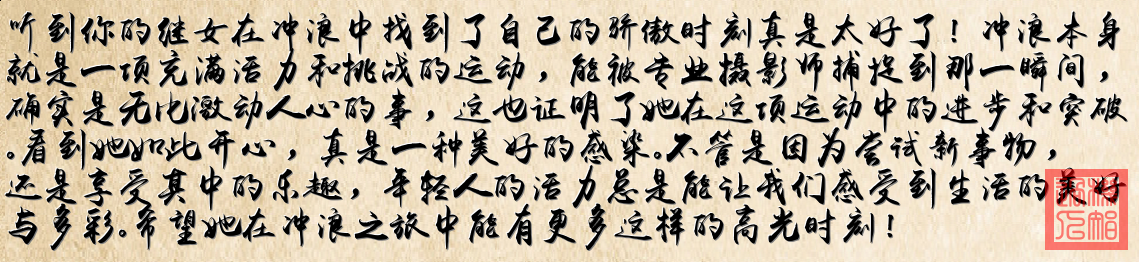 听到你的继女在冲浪中找到了自己的骄傲时刻真是太好了！冲浪本身
就是一项充满活力和挑战的运动，能被专业摄影师捕捉到那一瞬间，
确实是无比激动人心的事，这也证明了她在这项运动中的进步和突破
。看到她如此开心，真是一种美好的感染。不管是因为尝试新事物，
还是享受其中的乐趣，年轻人的活力总是能让我们感受到生活的美好
与多彩。希望她在冲浪之旅中能有更多这样的高光时刻！